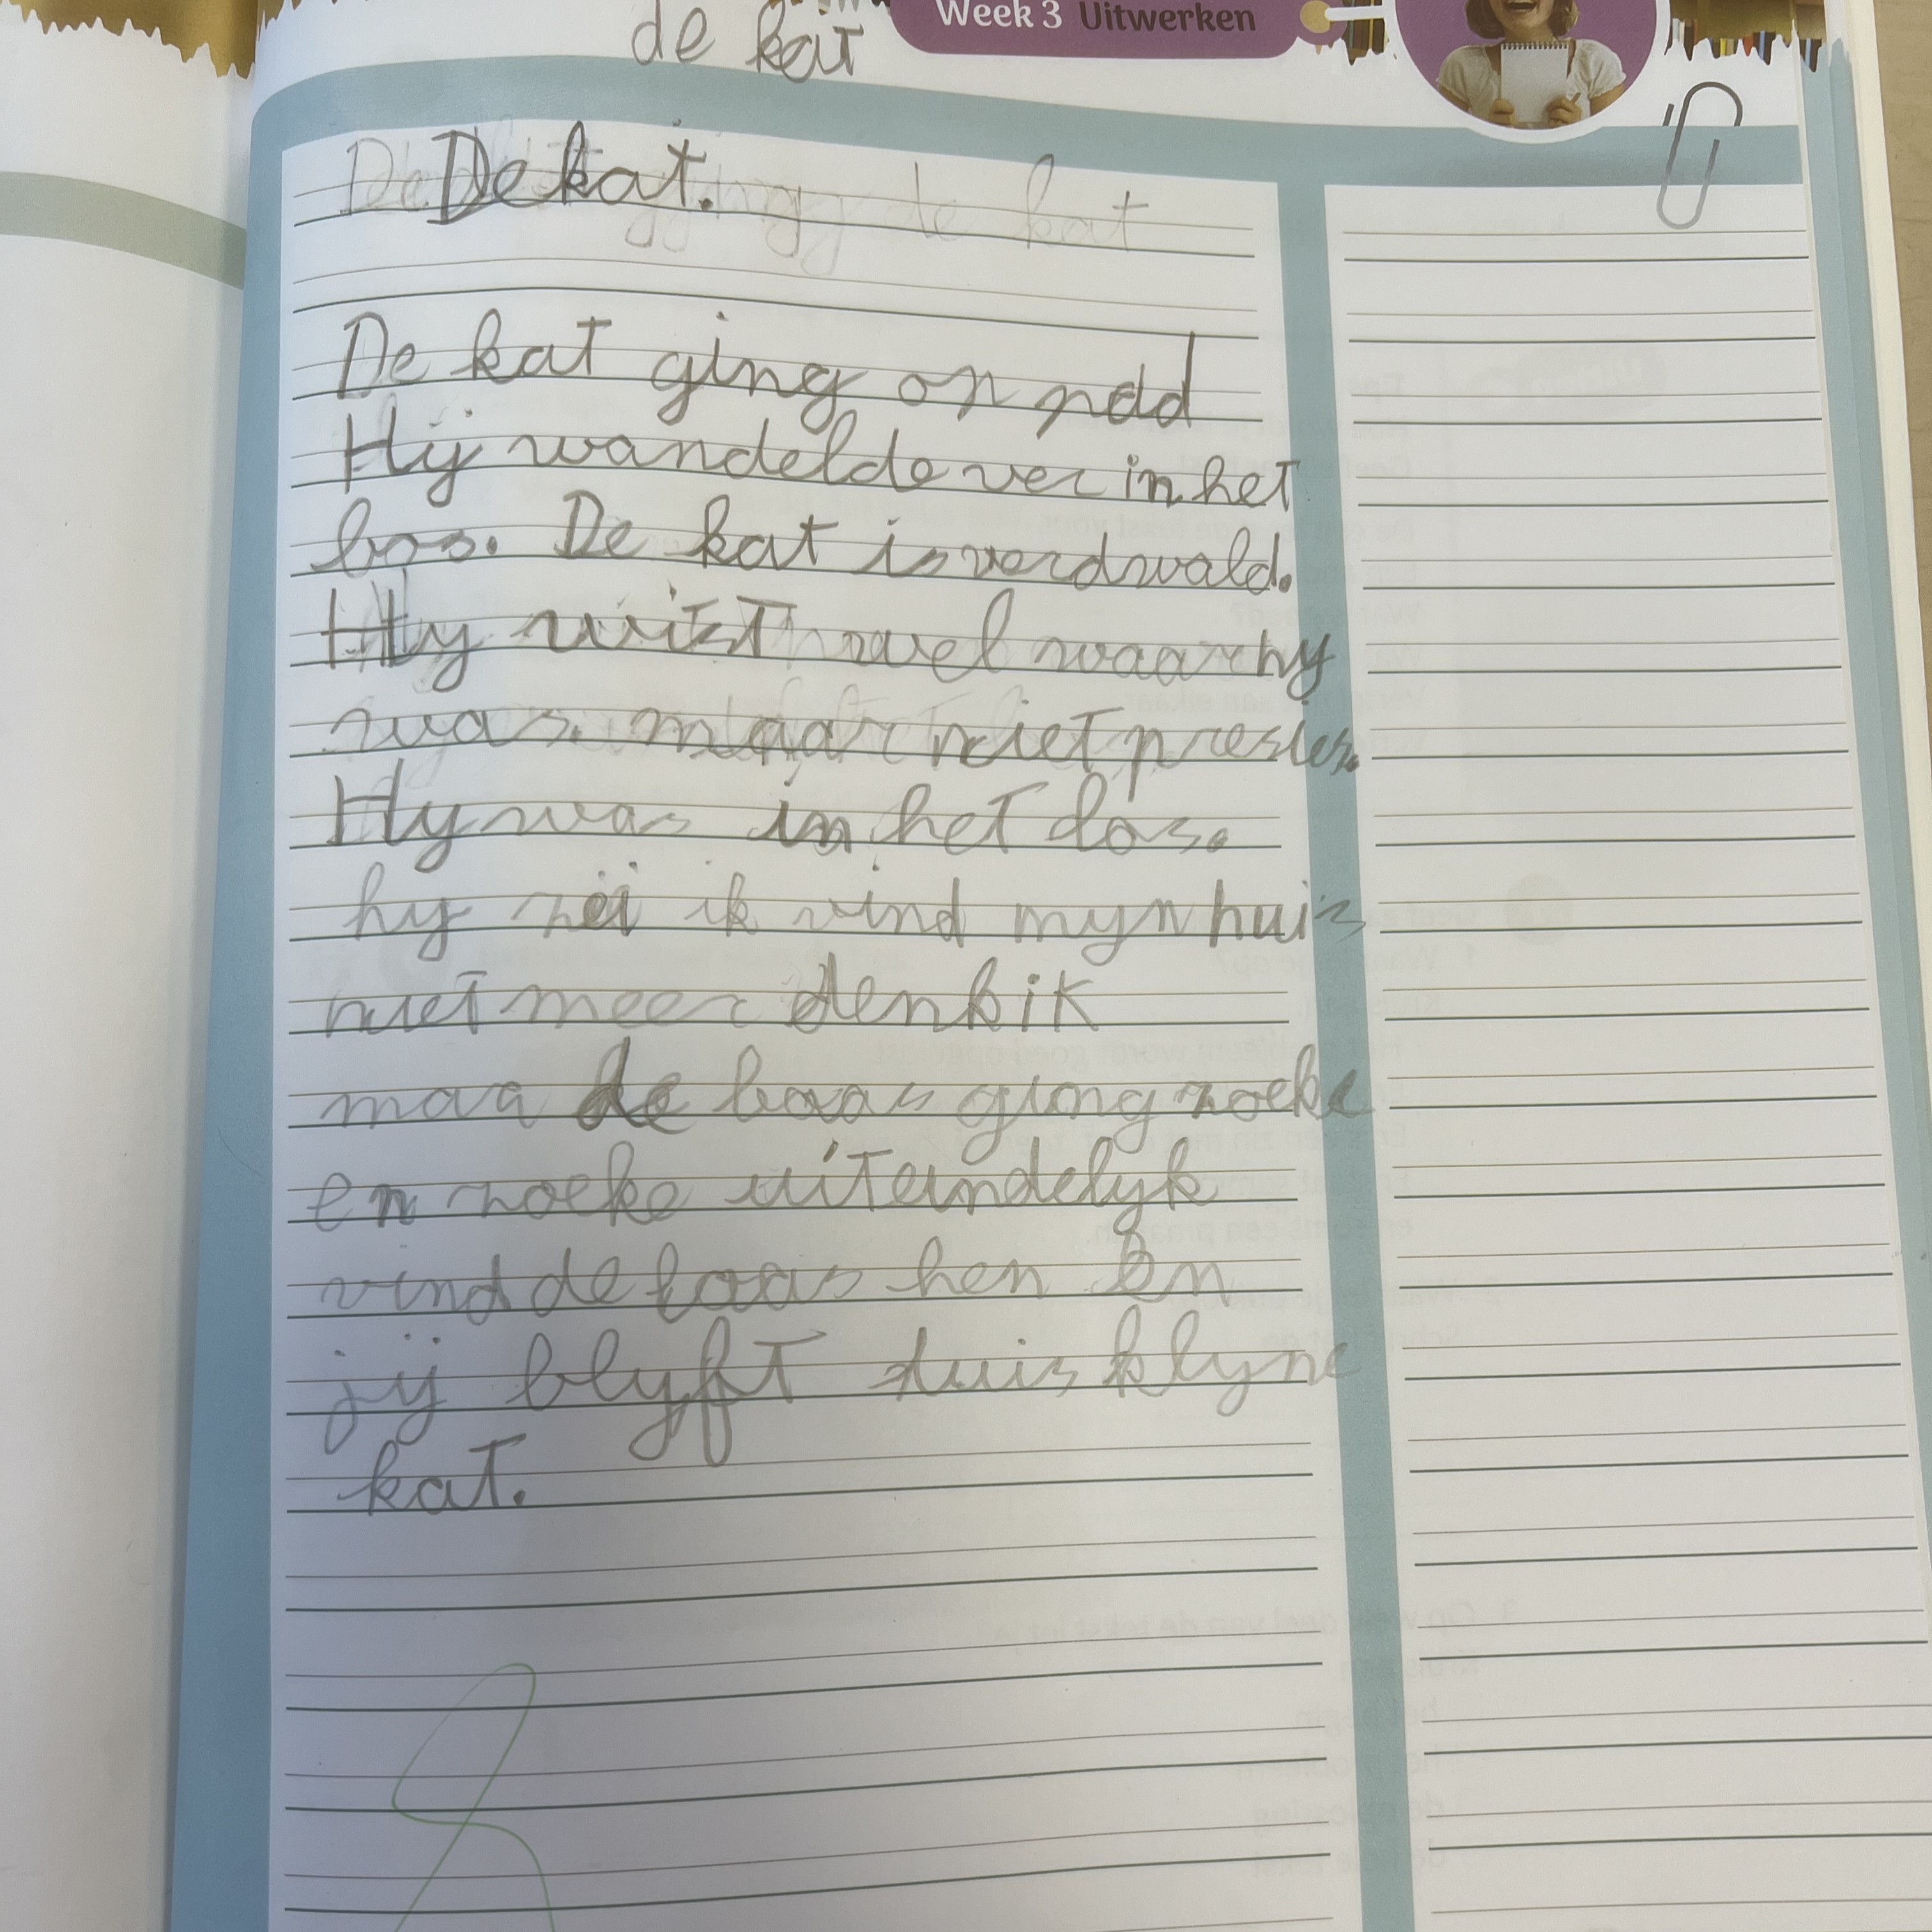 Week 3 Uitwerken
de kat
De kat.
De kat ging on pdd
Hij wandelde ver in het
bos. De kat is verdwald.
Hy wist wel waar hy
was. maar niet presies.
Hy was in het bos.
hy zei ik vind myn huis
niet meer denk ik
maa de baas ging zoeke
en zoeke uiteindelyk
vind de baas hen En
jij blyft tuis klyne
kat.